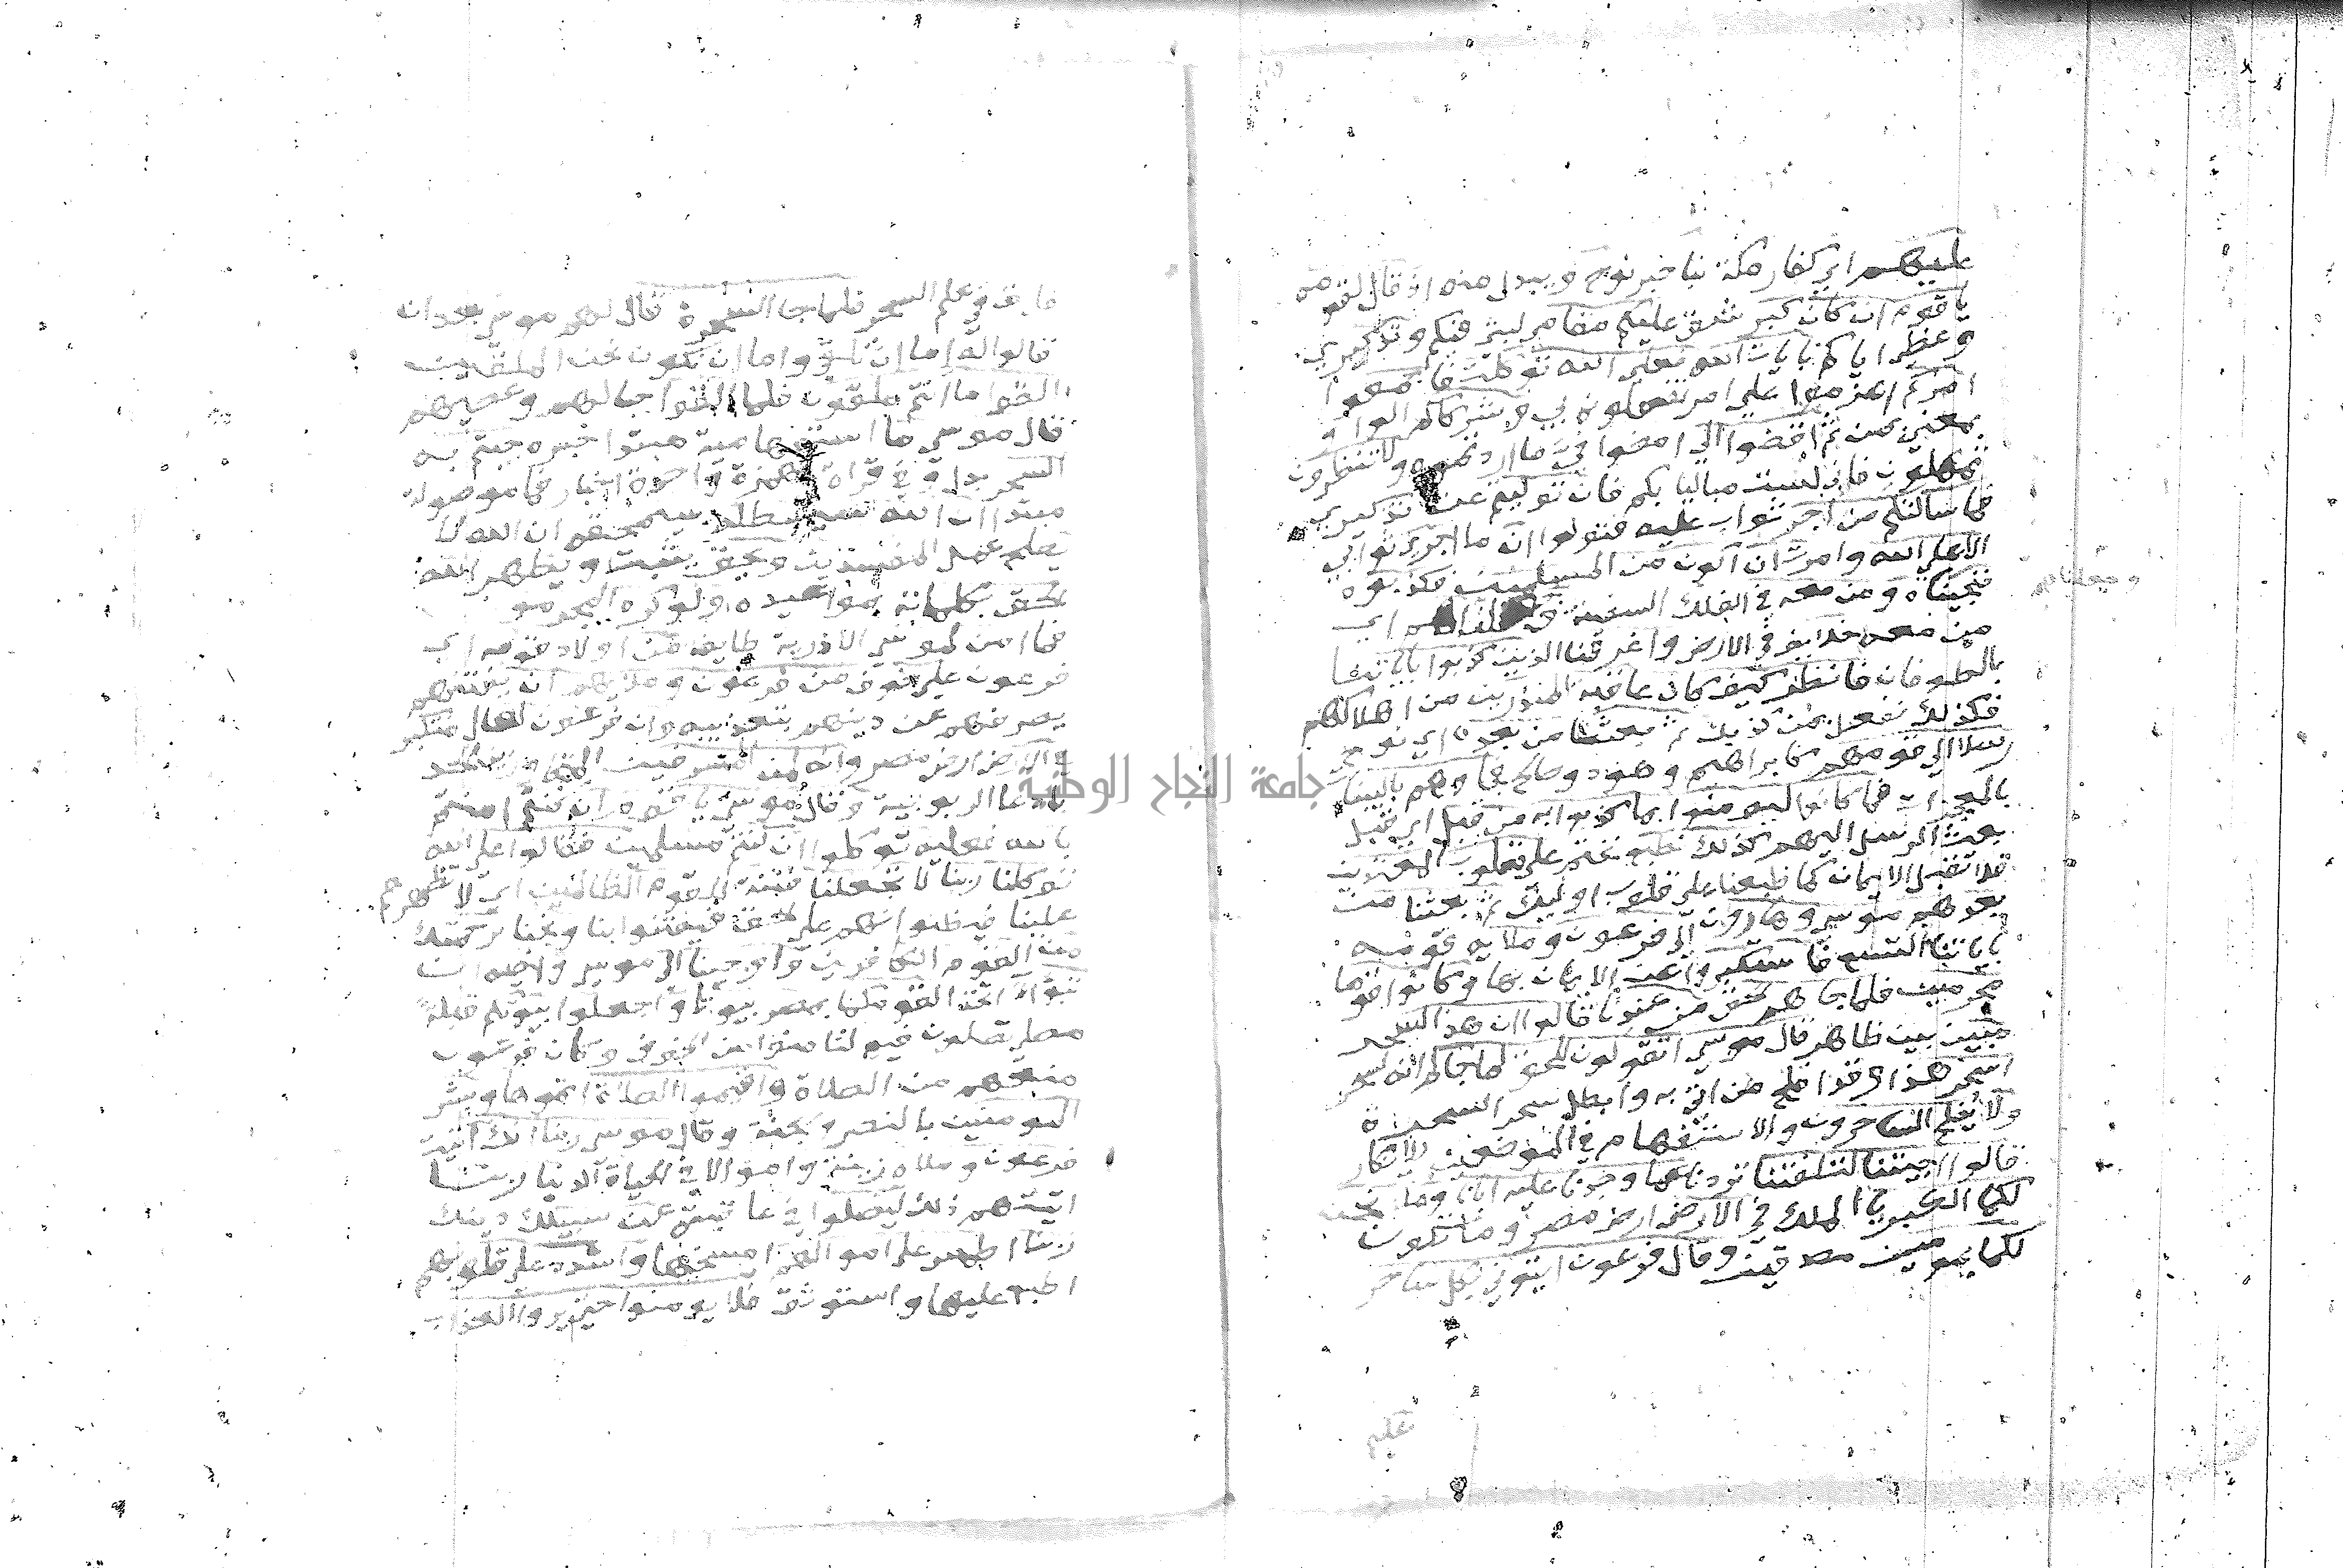 عليهم اي كفار مكة نبا خبر نوح ويبدل منه اذ قال لقومه
يا قوم ان كان كبر شق عليكم مقامي لبثي فيكم وتذكيري
وعظي اياكم بايات الله فعلى الله توكلت فاجمعوا
امركم اعزموا على امر تفعلونه بي وشركاكم الواو
بمعنى مع ثم اقضوا الي امضوا في ما اردتموه ولا تنظرون
تمهلون فاني لست مباليا بكم فان توليتم عن تذكيري
فما سالتكم من اجر ثواب عليه فتولوا ان ما اجري ثوابي
الا على الله وامرت ان اكون من المسلمين فكذبوه
فنجيناه ومن معه في الفلك السفينة اي
وجعلناهم
من معه خلايف في الارض واغرقنا الذين كذبوا باياتنا
بالطوفان فانظر كيف كان عاقبة المنذرين من اهلاكهم
فكذلك نفعل بمن كذبك ثم بعثنا من بعده اي نوح
رسلا الى قومهم كابراهيم وهود وصالح فجاوهم بالبينات
بالمعجزات فما كانوا ليومنوا بما كذبوا به من قبل اي قبل
بعث الرسل اليهم كذلك نطبع نختم على قلوب المعتدين
فلا تقبل الايمان كما طبعنا على قلوب اوليك ثم بعثنا من
بعدهم موسى وهارون الى فرعون وملايه قومه
باياتنا التسع فاستكبروا عن الايمان بها وكانوا قوما
مجرمين فلما جاهم الحق من عندنا قالوا ان هذا لسحر
مبين بين ظاهر قال موسى اتقولون للحق لما جاكم انه لسحر
اسحر هذا وقد افلح من اتى به وابطل سحر السحرة
ولا يفلح الساحرون والاستفهام في الموضعين للانكار
قالوا اجيتنا لتلفتنا تردنا عما وجدنا عليه اباانا وما نحن
لكما الكبريا الملك في الارض ارض مصر وتكون
لكما بمومنين مصدقين وقال فرعون ايتوني بكل ساحر
عليم
فايق في علم السحر فلما جا السحرة قال لهم موسى بعد ان
قالوا له اما ان تلقي واما ان نكون نحن الملقين
القوا ما انتم ملقون فلما القوا حبالهم وعصيهم
قال موسى ما استفهامية مبتدا خبره جيتم به
السحر بدل وفي قراة بهمزة واحدة اخبار فما موصولة
مبتدا ان الله سيبطله سيمحقه ان الله لا
يصلح عمل المفسدين ويحق يثبت ويظهر الله
الحق بكلماته بمواعيده ولو كره المجرمو
فما امن لموسى الا ذرية طايفة من اولاد قومه اي
فرعون على خوف من فرعون وملايهم ان يفتنهم
يصرفهم عن دينهم بتعذيبه وان فرعون لعال متكبر
في الارض ارض مصر وانه لمن المسرفين المتجاوزين الحد
بادعا الربوبية وقال موسى يا قوم ان كنتم امنتم
بالله فعليه توكلوا ان كنتم مسلمين فقالوا على الله
توكلنا ربنا لا تجعلنا فتنة للقوم الظالمين اي لا تظهرهم
علينا فيظنوا انهم على الحق فيفتنوا بنا ونجنا برحمتك
من القوم الكافرين واوحينا الى موسى واخيه ان
تبوا اتخذا لقومكما بمصر بيوتا واجعلوا بيوتكم قبلة
مصلى تصلون فيه لتامنوا من الخوف وكان فرعون
منعهم من الصلاة واقيموا الصلاة اتموها وبشر
المومنين بالنصر والجنة وقال موسى ربنا انك اتيت
فرعون وملاه زينة واموالا في الحياة الدنيا ربنا
اتيتهم ذلك ليضلوا في عاقبته عن سبيلك دينك
ربنا اطمس على اموالهم امسخها واشدد على قلوبهم
اطبع عليها واستوثق فلا يومنوا حتى يروا العذاب
جامعة النجاح الوطنية